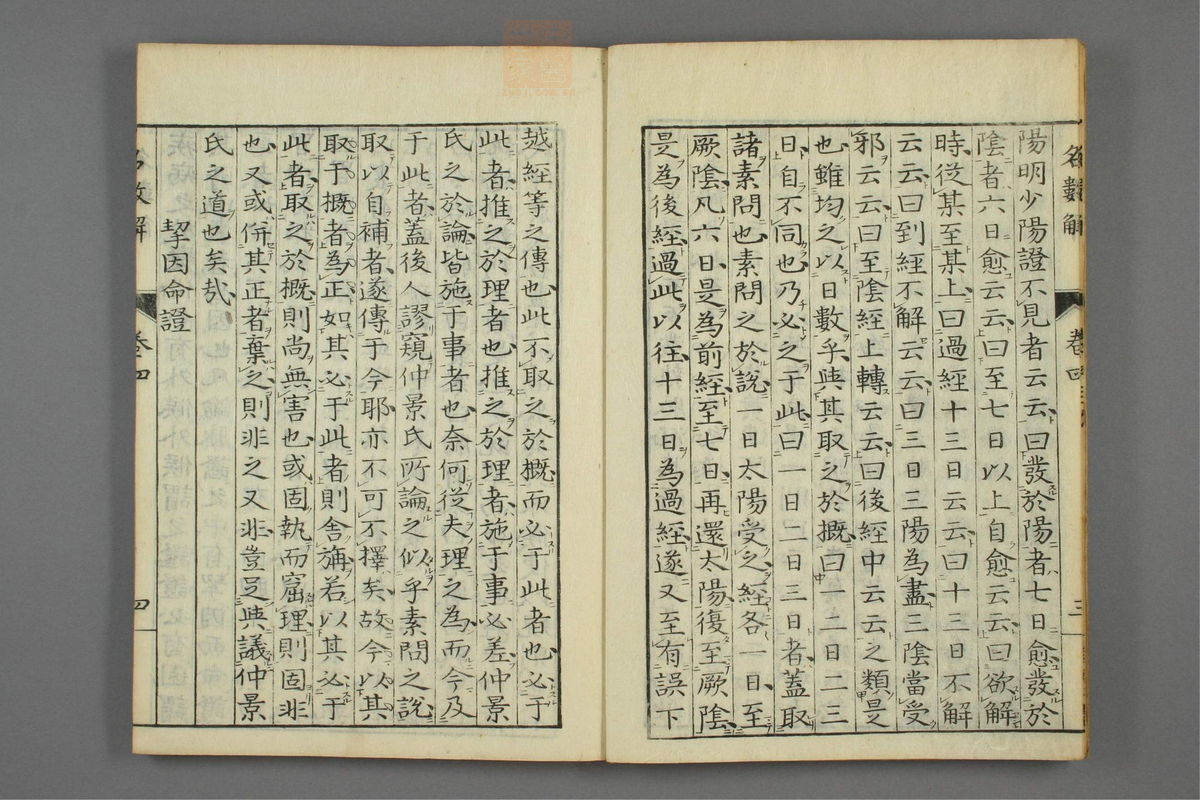 名數解 卷四 三
陽明少陽證不見者云云曰發於陽者七日愈發於
陰者六日愈云云曰至七日以上自愈云云曰欲解
時從某至某上曰過經十三日云云曰十三日不解
云云曰到經不解云云曰三日三陽為盡三陰當受
邪云云曰至陰經上轉云云曰後經中云云之類是
也雖均之以日數乎與其取之於概曰一二日二三
日自不同也乃必之于此曰一日二日三日者蓋取
諸素問也素問之於說一日太陽受之經各一日至
厥陰凡六日是為前經至七日再還太陽復至厥陰
是為後經過此以往十三日為過經遂又至有誤下
越經等之傳也此不取之於概而必于此者也必于
此者推之於理者也推之於理者施于事必差仲景
氏之於論皆施于事者也奈何從夫理之為而今及
于此者蓋後人謬窺仲景氏所論之似乎素問之說
取以自補者遂傳于今耶亦不可不擇矣故今以其
取于概者為正如其必于此者則舍旃若以其必于
此者取之於概則尚無害也或固執而窟理則固非
也又或併其正者棄之則非之又非豈足與議仲景
氏之道也矣哉
挈因命證
名數解 卷四 四